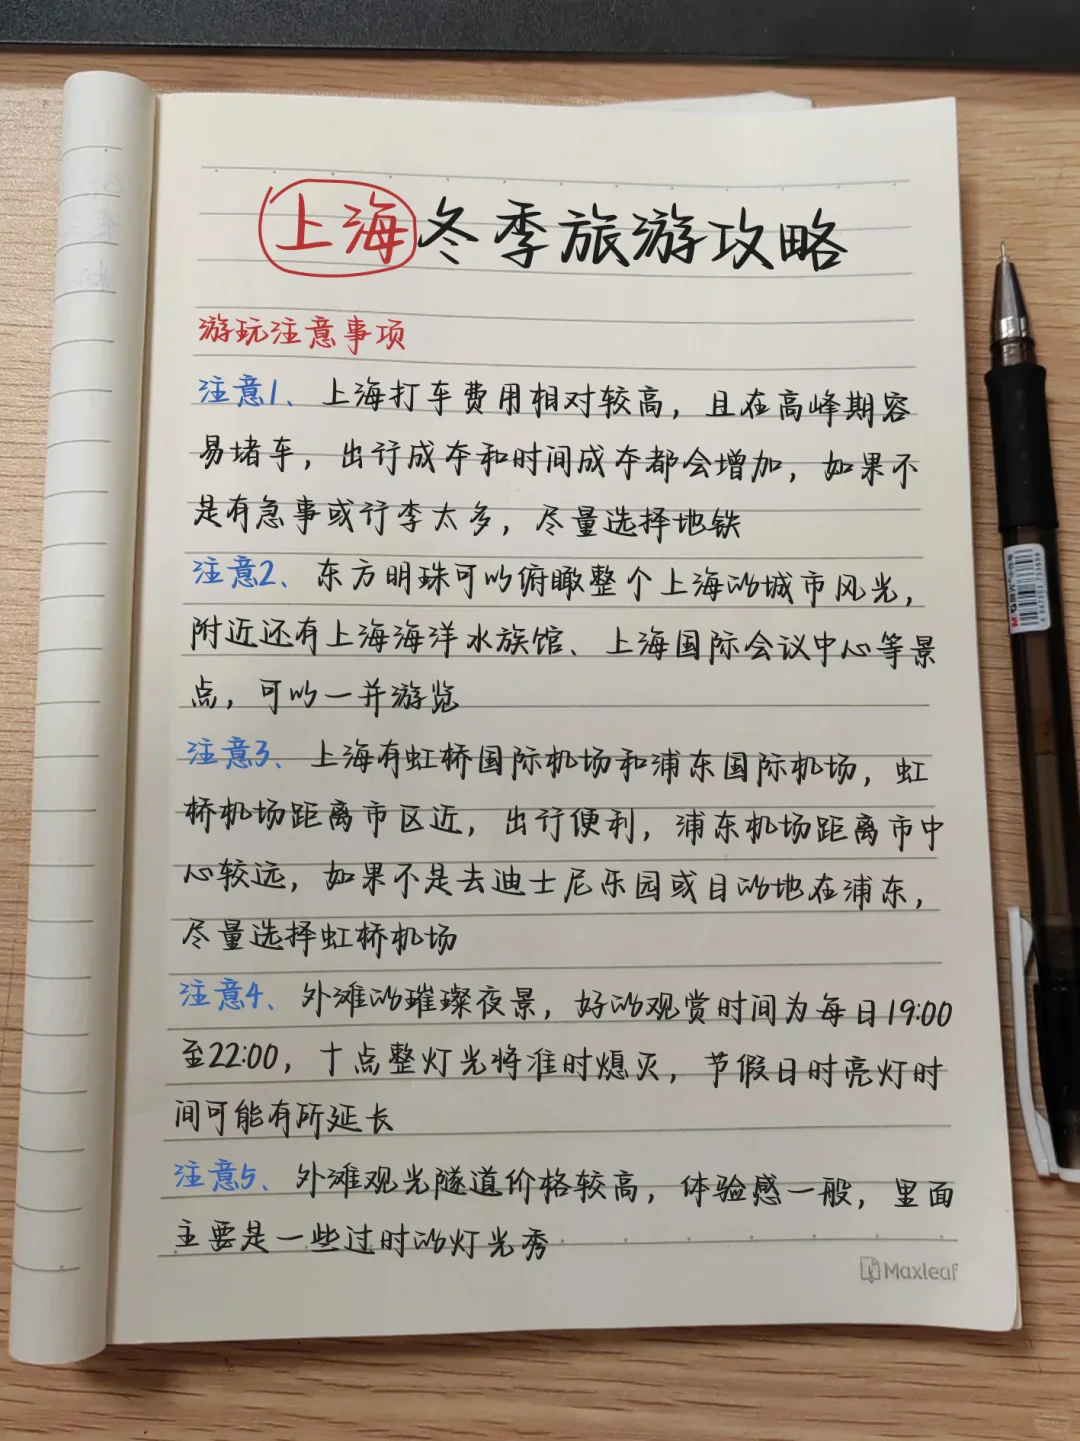 上海冬季旅游攻略
游玩注意事项
注意1、上海打车费用相对较高，且在高峰期容
易堵车，出行成本和时间成本都会增加，如果不
是有急事或行李太多，尽量选择地铁
注意2、东方明珠可以俯瞰整个上海的城市风光，
附近还有上海海洋水族馆、上海国际会议中心等景
点，可以一并游览
注意3、上海有虹桥国际机场和浦东国际机场，虹
桥机场距离市区近，出行便利，浦东机场距离市中
心较远，如果不是去迪士尼乐园或目的地在浦东，
尽量选择虹桥机场
注意4、外滩的璀璨夜景，好的观赏时间为每日19:00
至22:00，十点整灯光将准时熄灭，节假日时亮灯时
间可能有所延长
注意5、外滩观光隧道价格较高，体验感一般，里面
主要是一些过时的灯光秀
Maxleaf
M&G